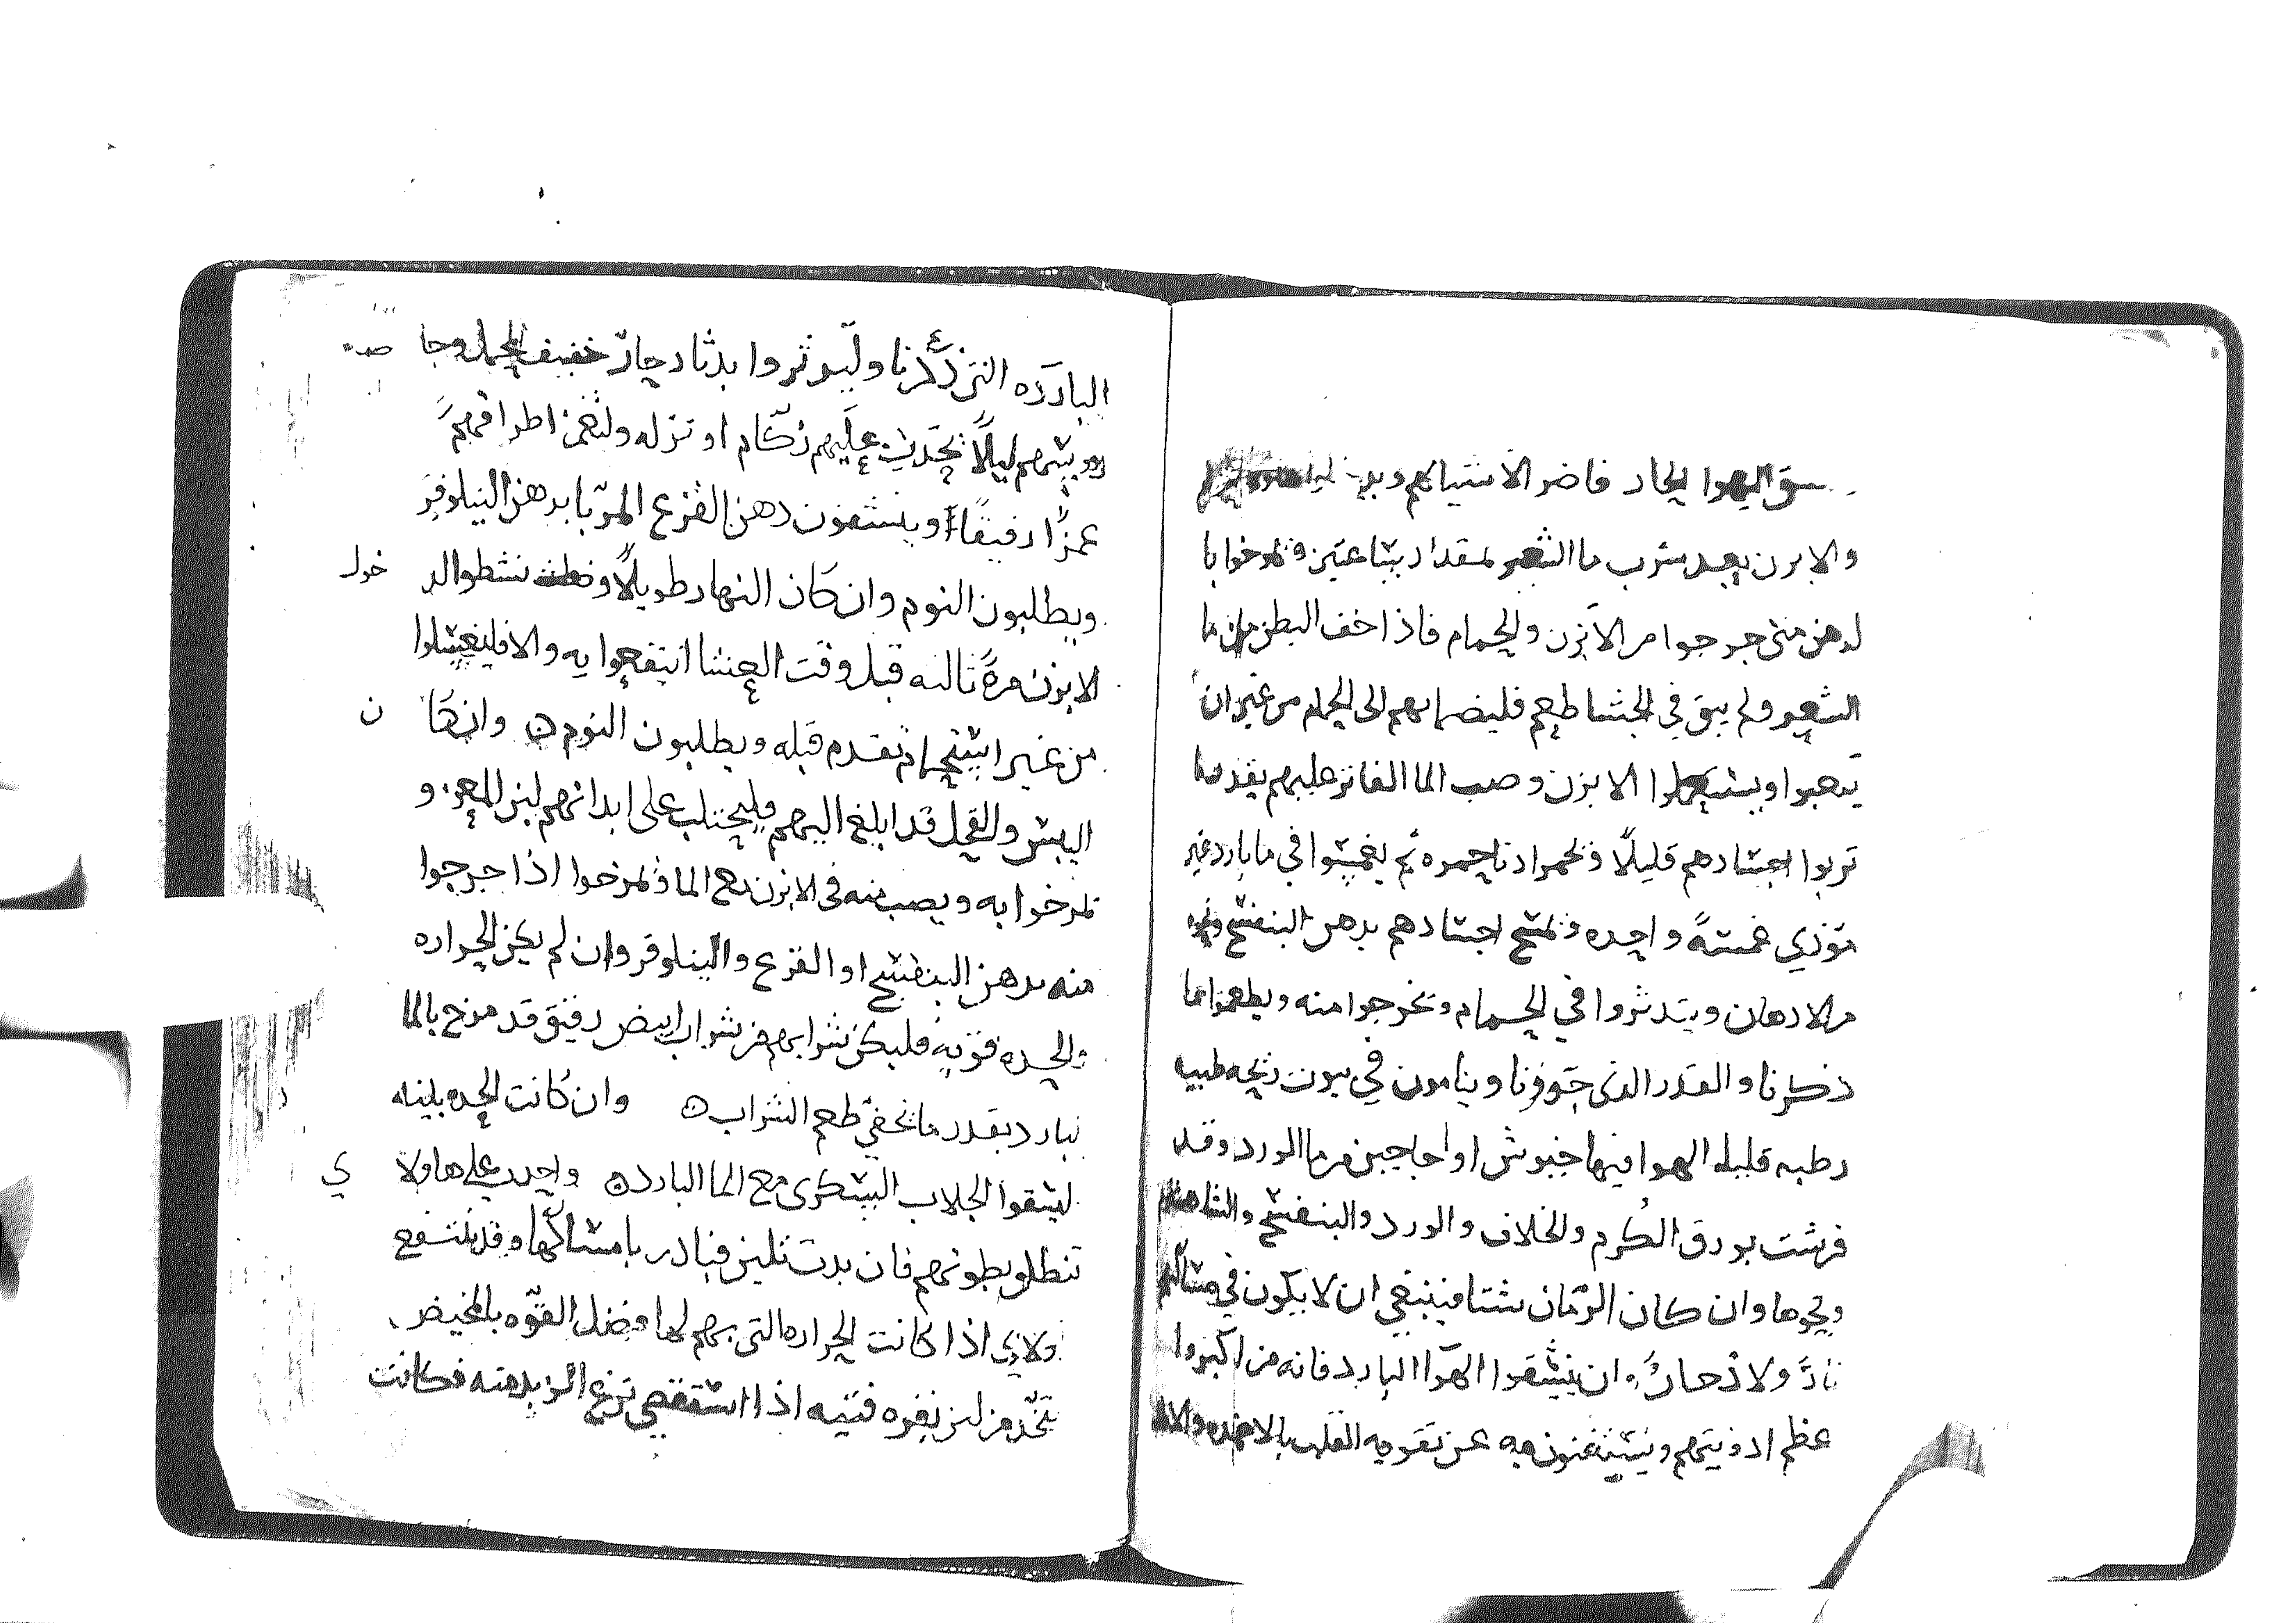 الهوا الحار فاضر الاشيا بهم
والابزن بعد شرب ما الشعير بمقدار ساعتين وتمرخوا با
لدهن متى خرجوا من الابزن والحمام فاذا خف البطن من ما
الشعير ولم يبق في الجشا طعم فليضـ بهم الى الحمام من غير ان
يتعبوا ويستعملوا الابزن وصب الما الفاتر عليهم بقدر ما
تربوا اجسادهم قليلا وتحمر ادنا حمره ثم يغمسوا في ما بارد غير
موذي غمسةً واحده وتمسح اجسادهم بدهن البنفسج
من الادهان ويتدثروا في الحمام وتخرجوا منه ويطعموا مما
ذكرنا والقدر الذى وينامون في بيوت ريحه طيبه
رطبه قليله الهوا فيها خيوش او اجاجين من ما الورد وقد
فرشت بورق الكرم والخلاف والورد والبنفسج
ونحوها وان كان الزمان شتا فينبغي ان لا يكون في مساكنهم
نار ولا دخان وان ينشقوا الهوا البارد فانه من اكبر دوا
عظم اذيتهم ويستغنون به عن تقويه القلب بالاضمده
البارده التي ذكرنا وليدثروا بدثار حار خفيف الحمل وجا
ليلا يحدث عليهم زكام او نزله ولتغمز اطرافهم
غمزًا رفيقًا وينشقون دهن القرع المربا بدهن النيلوفر
ويطلبون النوم وان كان النهار طويلًا نشطوا لد خول
الابزن مرة ثالثه قبل وقت العشا انتفعوا به والا فليغسلوا
من غير استحمام تقدم قبله ويطلبون النوم وان كا ن
اليبس والقحل قد ابلغ اليهم فليحتلب على ابدانهم لبن المعز و
تمرخوا به ويصب منه في الابزن مع الما وتمرخوا اذا خرجوا
منه بدهن البنفسج او القرع والنيلوفر وان لم يكن الحراره
والحده قويه فليكن شرابهم من شراب ابيض رقيق قد مزج بالما
البارد بقدر ما تخفي طعم الشراب وان كانت الحده بلينه
ليسقوا الجلاب السكرى مع الما البارد واحدر على هاولا ي
تنطلق بطونهم فان بدت تلين فبادر بامساكها وقد ينتفع
ولاي اذا كانت الحراره التي بهم لها فضل القوه بالمخيض
يتخذ من لبن بقره فتيه اذا استقصي نزع الزبد منه فكانت